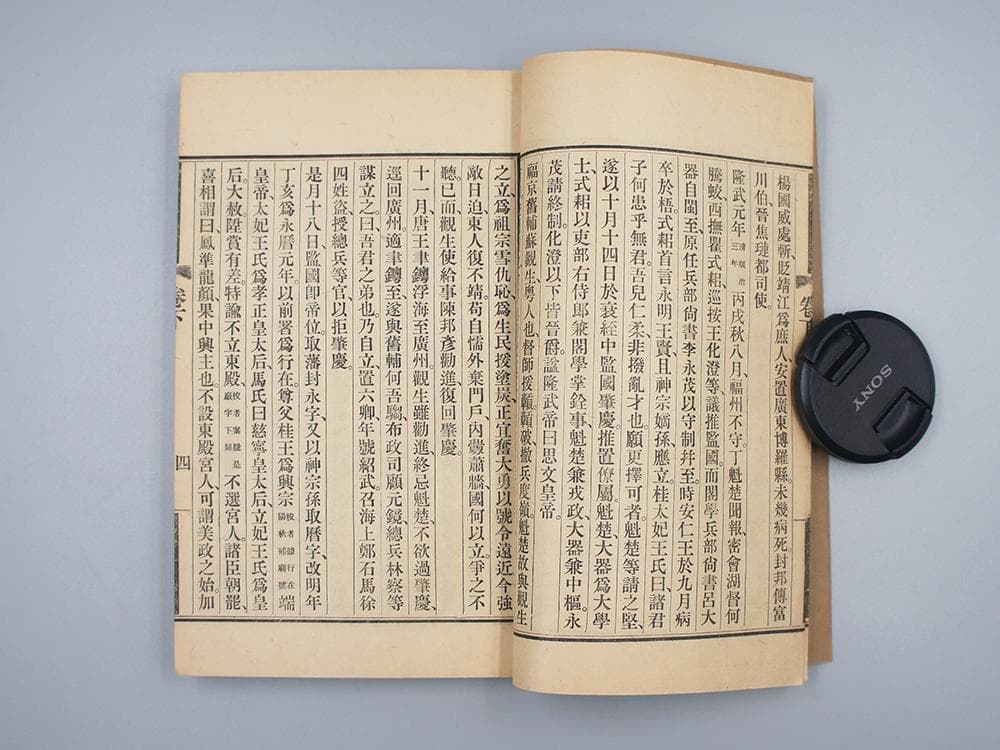 楊國威處斬、貶靖江爲庶人、安置廣東博羅縣、未幾病死、封邦傳富
川伯、晉焦璉都司使。
隆武元年清順治三年丙戌秋八月、福州不守。丁魁楚聞報、密會湖督何
騰蛟、西撫瞿式耜、巡按王化澄等議推監國。而閣學兵部尚書呂大
器自閩至、原任兵部尚書李永茂以守制幷至。時安仁王於九月病
卒於梧、式耜首言永明王賢、且神宗嫡孫、應立。桂太妃王氏曰、諸君
子何患乎無君。吾兒仁柔、非撥亂才也、願更擇可者。魁楚等請之堅、
遂以十月十四日於衰絰中監國肇慶。推置僚屬、魁楚、大器爲大學
士、式耜以吏部右侍郎兼閣學掌銓事、魁楚兼戎政、大器兼中樞、永
茂請終制。化澄以下、皆晉爵。諡隆武帝曰思文皇帝。
福京舊輔蘇觀生、粵人也、督師援贛、贛破、撤兵度嶺。魁楚故與觀生
之立、爲祖宗雪仇恥、爲生民援塗炭、正宜奮大勇以號令遠近。今強
敵日迫、東人復不靖、苟自懦外棄門戶、內釁蕭牆、國何以立。爭之不
聽。已而觀生使給事陳邦彥勸進、復回肇慶。
十一月、唐王聿鐭浮海至廣州。觀生雖勸進、終忌魁楚、不欲過肇慶、
巡回廣州。適聿鐭至、遂與舊輔何吾騶、布政司顧元鏡、總兵林察等
謀立之、曰、吾君之弟也。乃自立、置六卿、年號紹武、召海上鄭石馬徐
四姓盜、授總兵等官、以拒肇慶。
是月十八日、監國卽帝位、取藩封永字、又以神宗孫取曆字、改明年
丁亥爲永曆元年。以前署爲行在。尊父桂王爲興宗校者據行在陽秋補廟號端
皇帝、太妃王氏爲孝正皇太后、馬氏曰慈寧皇太后、立妃王氏爲皇
后。大赦。陞賞有差。特諭不立東殿、不選宮人。諸臣朝罷、
喜相謂曰、鳳準龍顏、果中興主也。不設東殿宮人、可謂美政之始。加
四
SONY